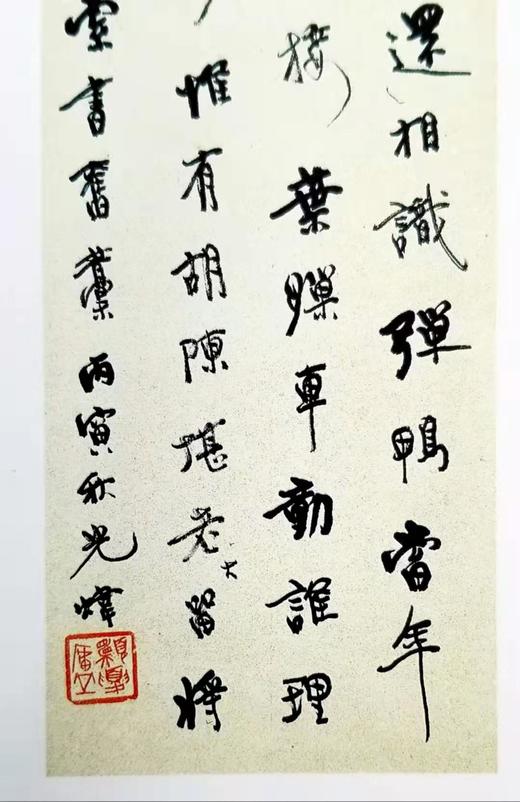 還相識彈鴨當年
葉車動誰理
惟有胡陳堪老大留將
索書舊藁丙寅秋光煒